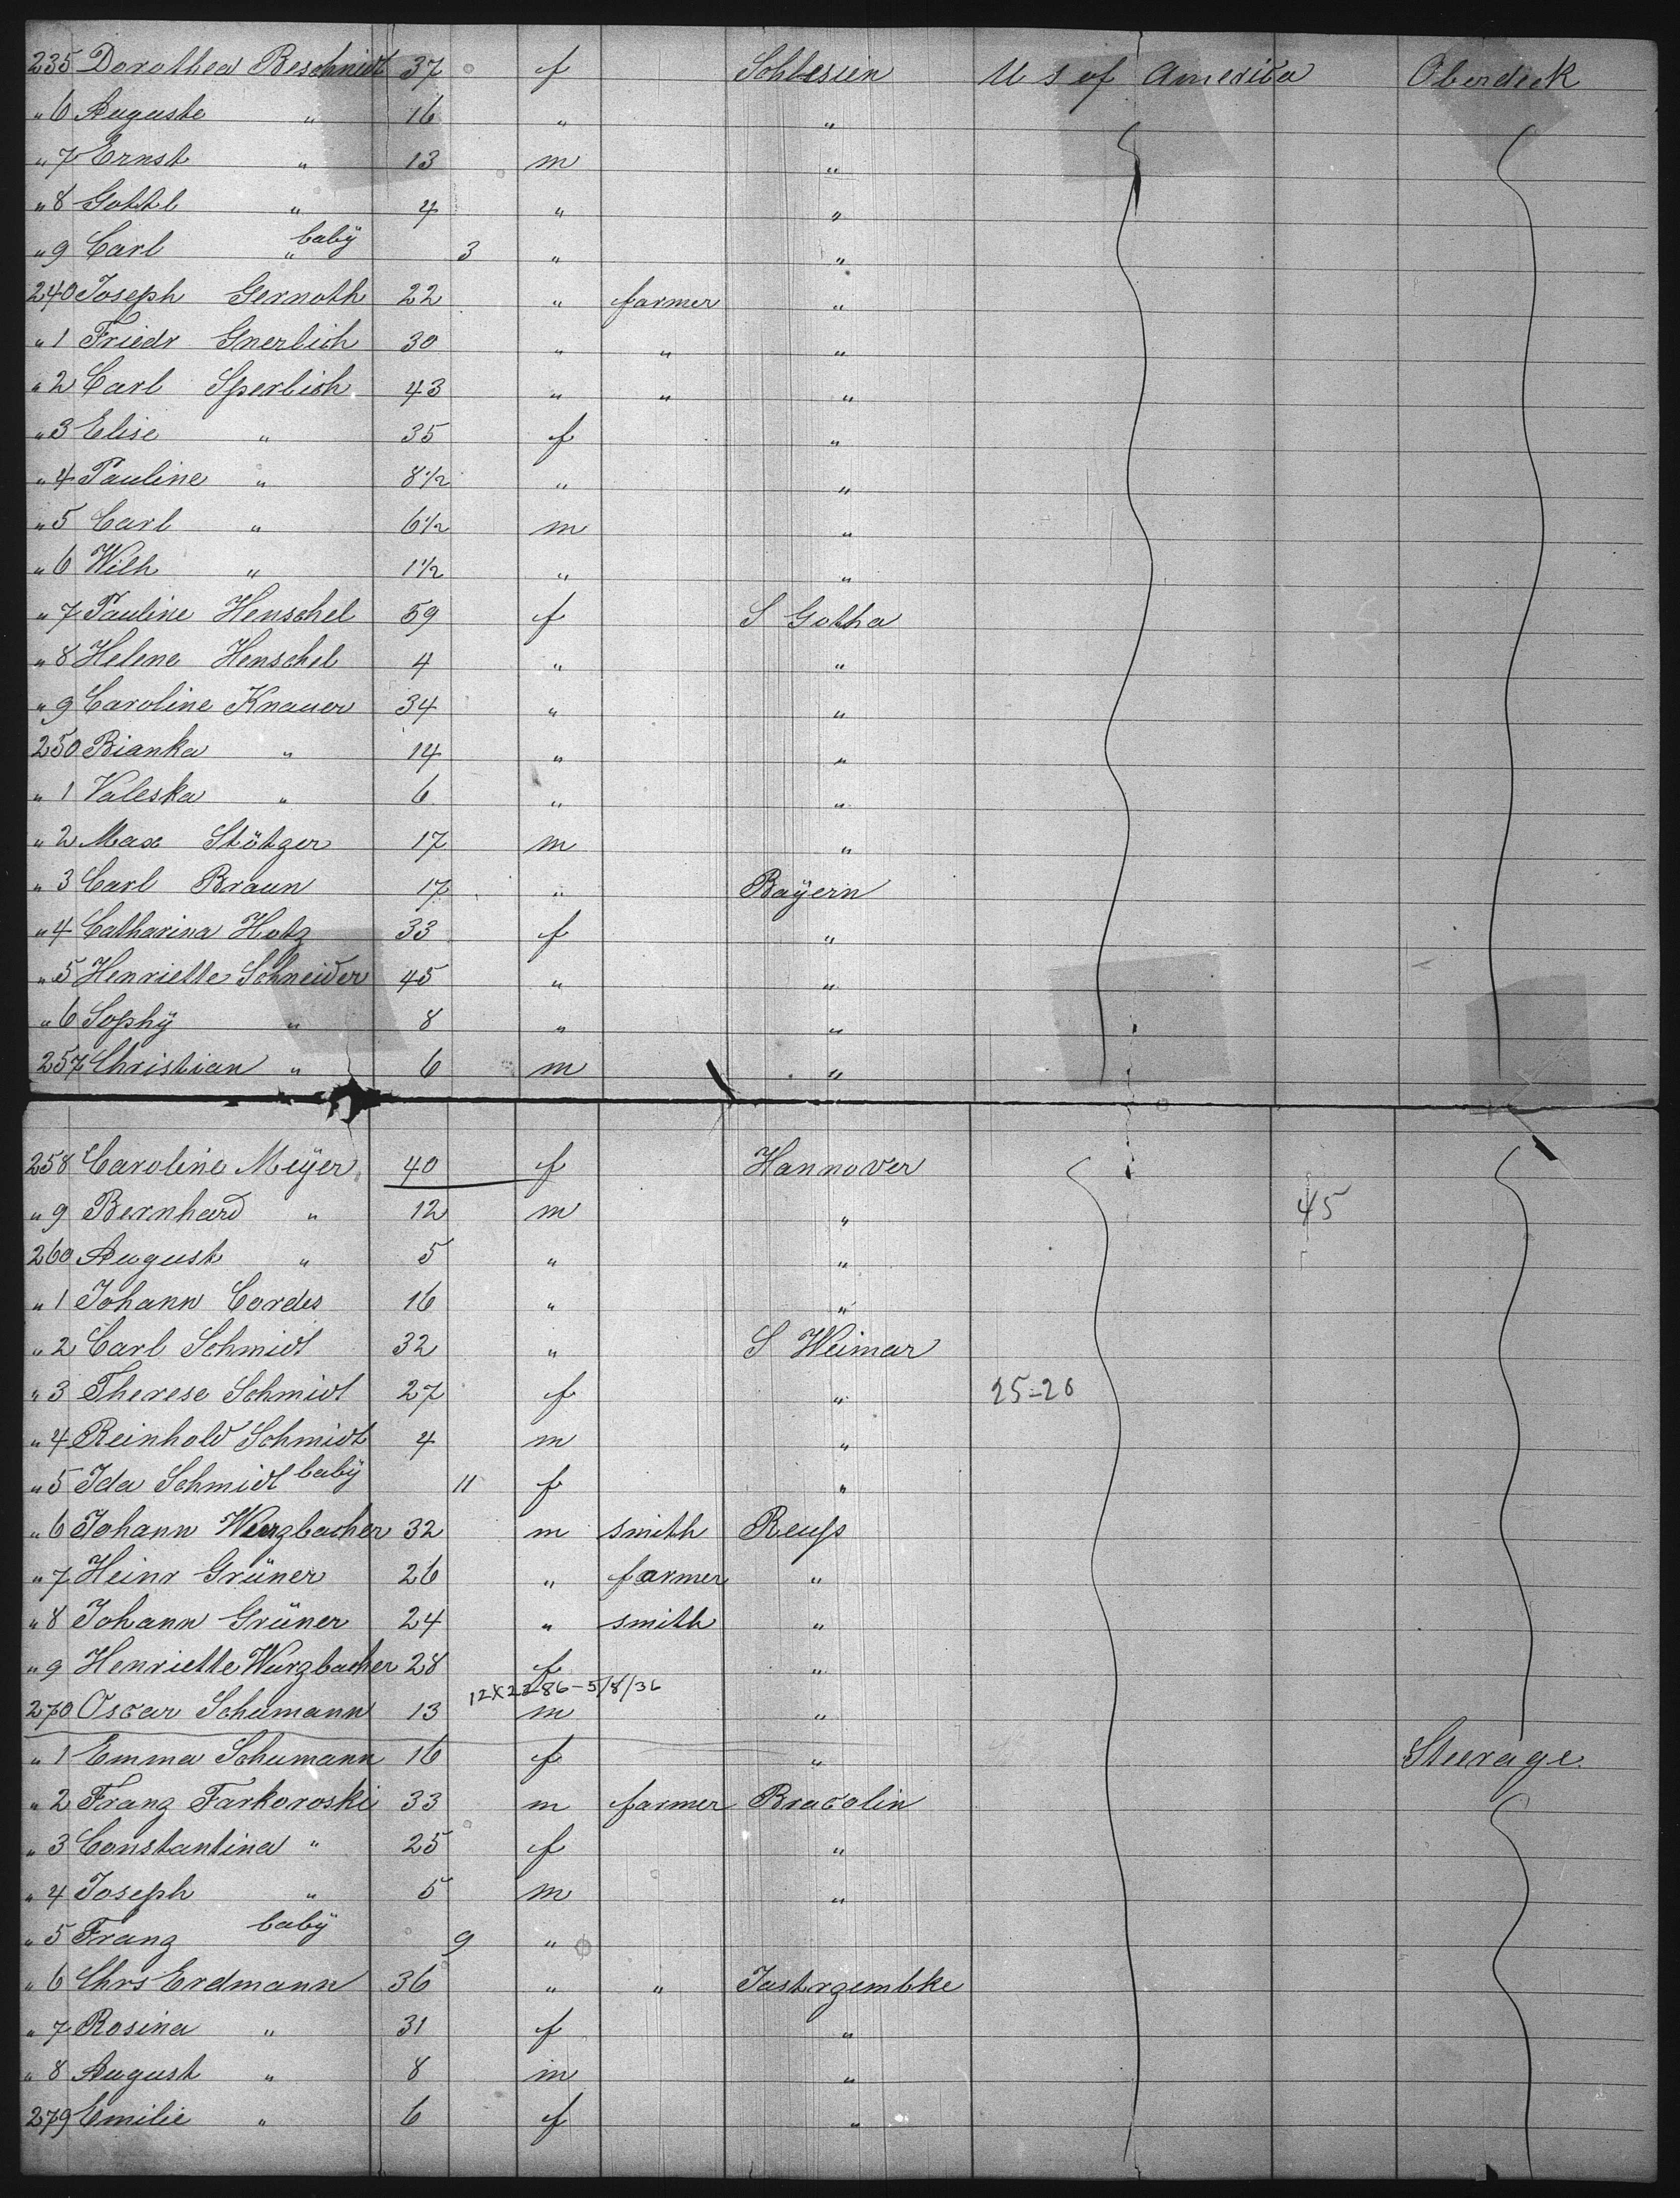 235 Dorothea Beschnidt 37 f Schlesien U S of America Oberdeck
" 6 Auguste " 16 " "
" 7 Ernst " 13 m "
" 8 Gottl " 4 " "
" 9 Carl " baby 3 " "
240 Joseph Gernoth 22 " farmer "
" 1 Friedr Gnerlich 30 " " "
" 2 Carl Sperlich 43 " " "
" 3 Elise " 35 f "
" 4 Pauline " 8 1/2 " "
" 5 Carl " 6 1/2 m "
" 6 Wilh " 1 1/2 " "
" 7 Pauline Henschel 59 f S Gotha
" 8 Helene Henschel 4 " "
" 9 Caroline Knauer 34 " "
250 Bianka " 14 " "
" 1 Valeska " 6 " "
" 2 Max Stötzer 17 m "
" 3 Carl Braun 17 " Bayern
" 4 Catharina Hotz 33 f "
" 5 Henriette Schneider 45 " "
" 6 Sophÿ " 8 " "
257 Christian " 6 m "
258 Caroline Meÿer 40 f Hannover
" 9 Bernhard " 12 m " 45
260 August " 5 " "
" 1 Johann Cordes 16 " "
" 2 Carl Schmidt 32 " S Weimar
" 3 Therese Schmidt 27 f " 25-26
" 4 Reinhold Schmidt 4 m "
" 5 Ida Schmidt baby 11 f "
" 6 Johann Wurzbacher 32 m smith Reuſs
" 7 Heinr Grüner 26 " farmer "
" 8 Johann Grüner 24 " smith "
" 9 Henriette Wurzbacher 28 f "
12X2286-5/8/36
270 Oscar Schumann 13 m "
" 1 Emma Schumann 16 f " Steerage
" 2 Franz Tarkoroski 33 m farmer Bracolin
" 3 Constantina " 25 f "
" 4 Joseph " 5 m "
" 5 Franz baby 9 "
" 6 Chrs Erdmann 36 " " Jastrzembke
" 7 Rosina " 31 f "
" 8 August " 8 m "
279 Emilie " 6 f "